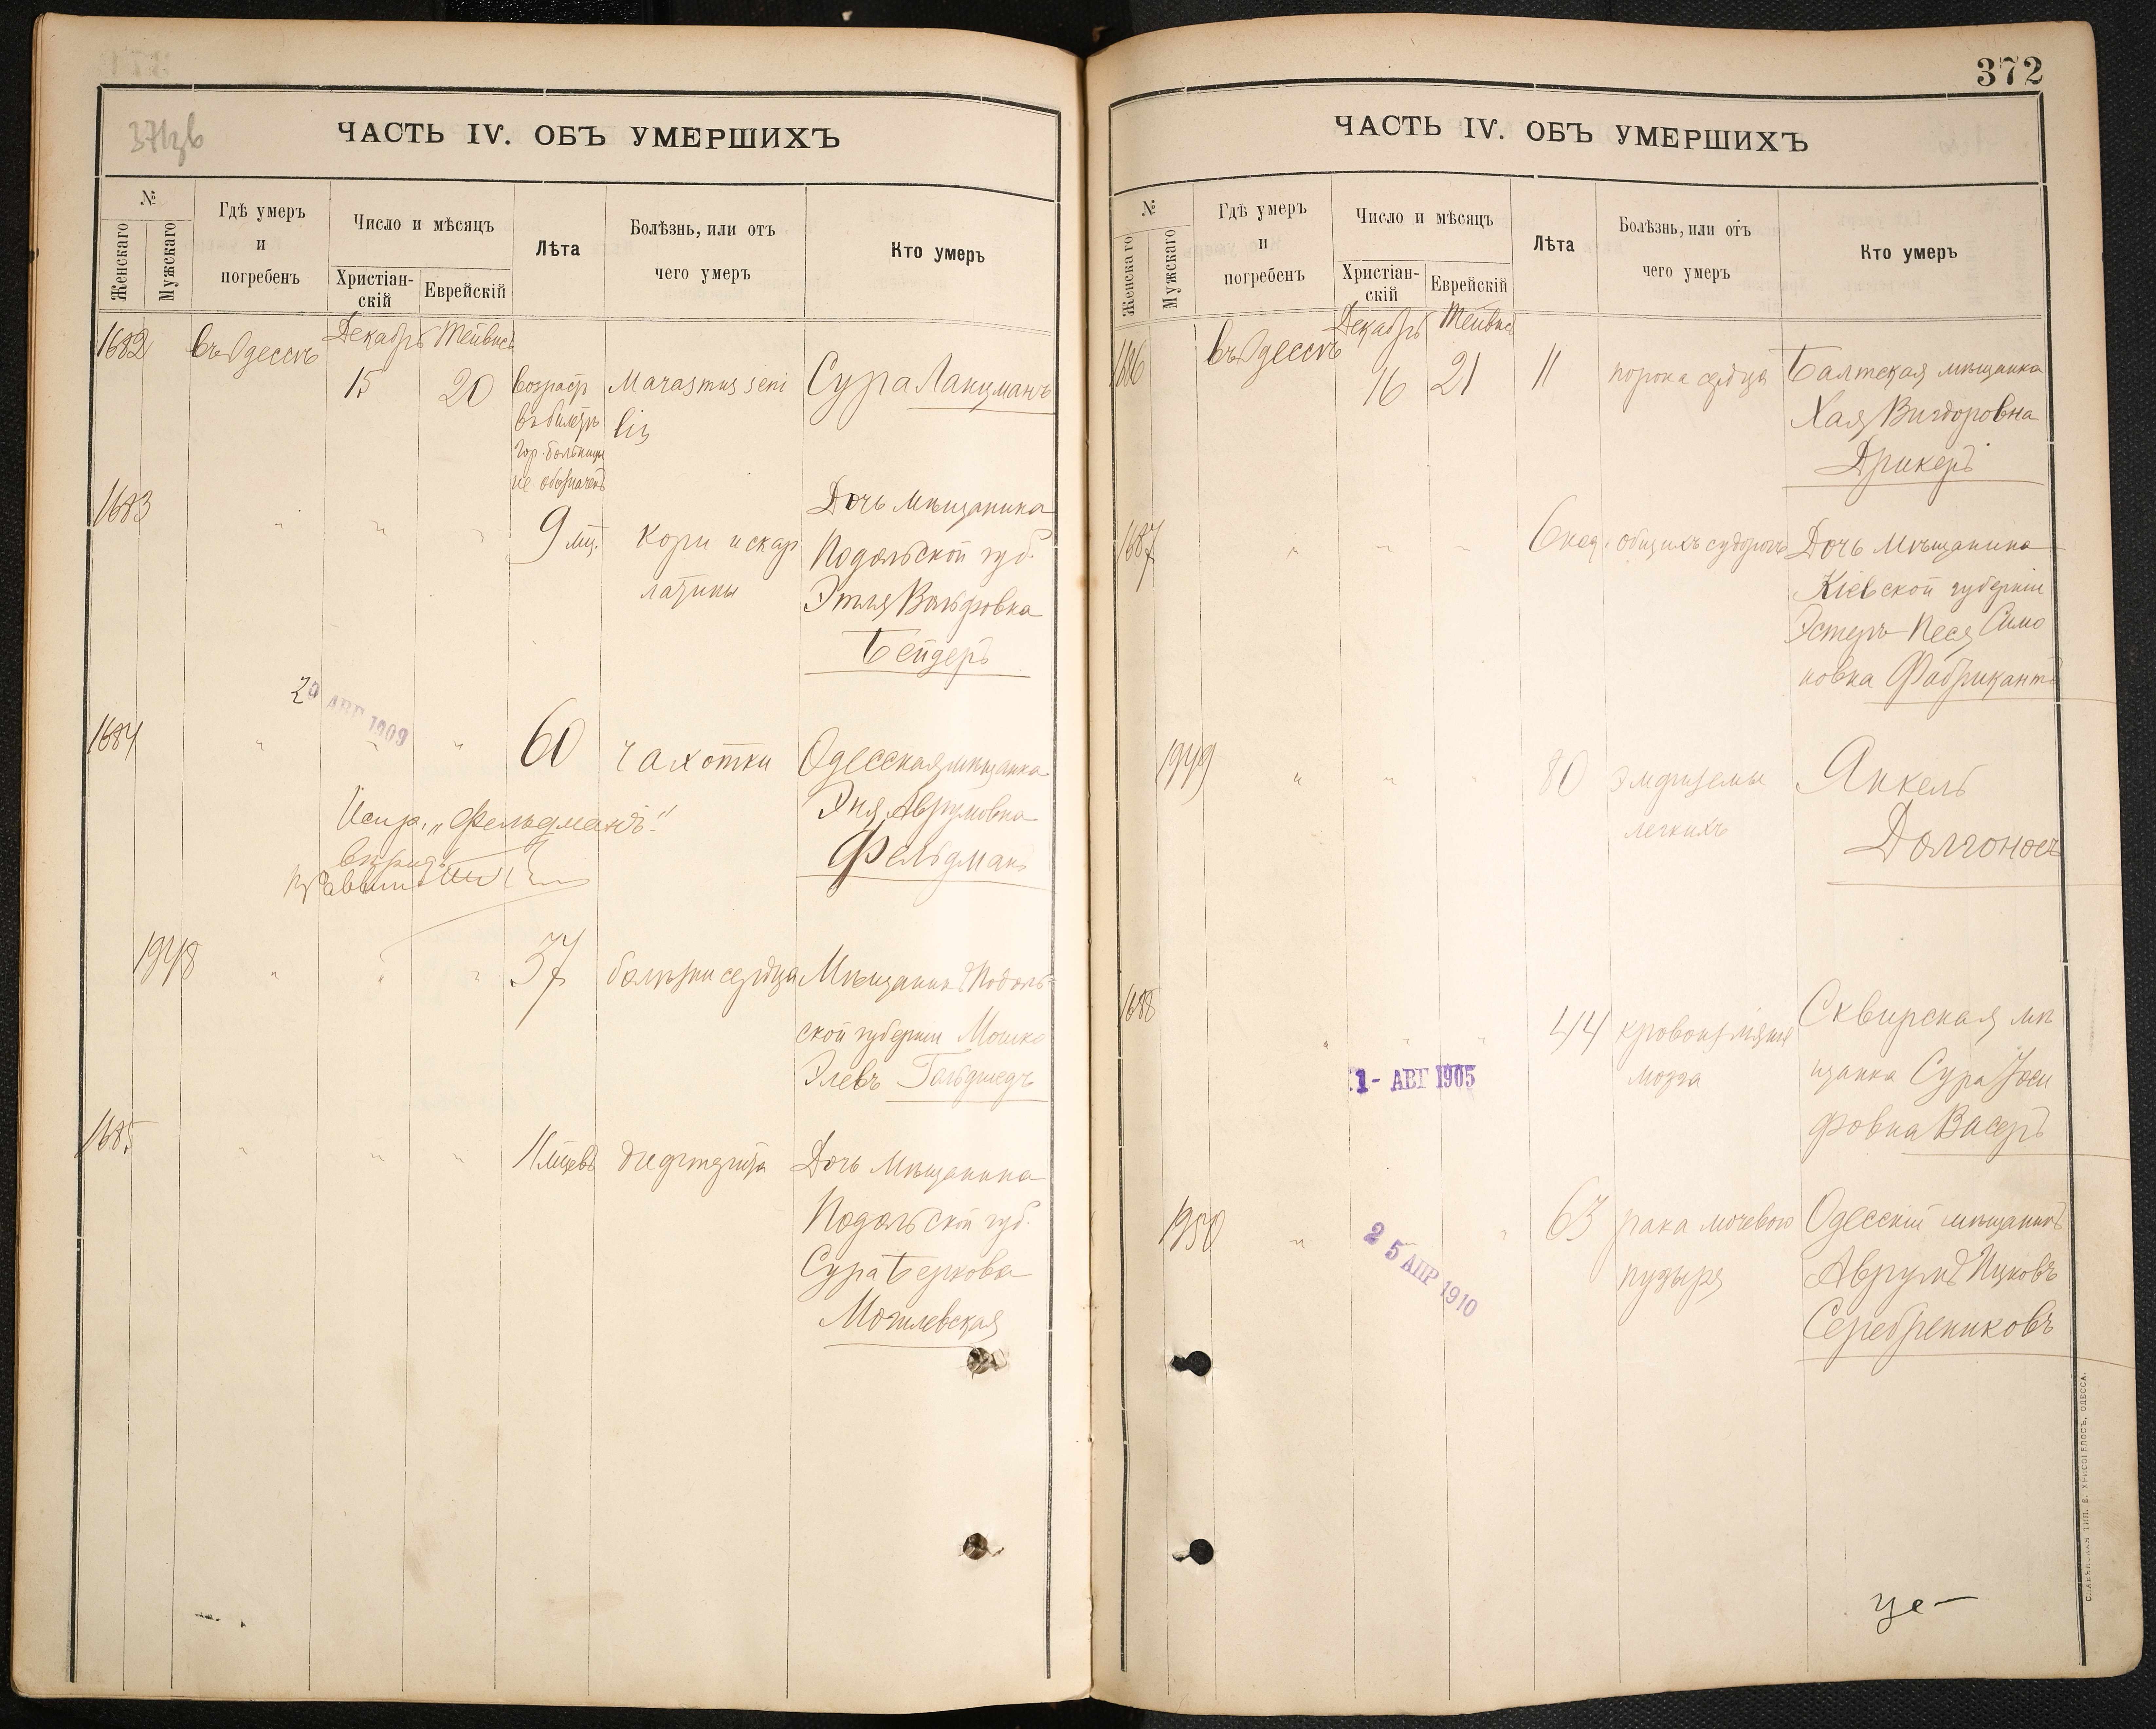 371 об
ЧАСТЬ IV. ОБЪ УМЕРШИХЪ
№
Женскаго
Мужскаго
Гдѣ умеръ
и
погребенъ
Число и мѣсяцъ
Христіан-
скій
Еврейскій
Лѣта
Болѣзнь, или отъ
чего умеръ
Кто умеръ
1682
въ Одессѣ
Декабрь
Тейвисъ
15
20
возрастъ
въ билетѣ
гор. больницы
не обозначенъ
Marasmus seni
lis
Сура Лакцманъ
1683
" " "
9 мц.
кори и скар
латины
Дочь мѣщанина
Подольской губ.
Этля Вольфовна
Бейдеръ
20 АВГ 1909
1684
" " "
60
чахотки
Одесская мѣщанка
Эня Аврумовна
Фельдманъ
Испр. "Фельдманъ"
1948
" " "
37
болѣзни сердца
Мѣщанинъ Подоль-
ской губерніи Мошко
Элевъ Гольдшедъ
1685
" " "
11 мцевъ
дифтерита
Дочь мѣщанина
Подольской губ.
Сура Беркова
Могилевская
372
ЧАСТЬ IV. ОБЪ УМЕРШИХЪ
№
Женскаго
Мужскаго
Гдѣ умеръ
и
погребенъ
Число и мѣсяцъ
Христіан-
скій
Еврейскій
Лѣта
Болѣзнь, или отъ
чего умеръ
Кто умеръ
1686
въ Одессѣ
Декабрь
Тейвисъ
16
21
11
порока сердца
Балтская мѣщанка
Хая Вигдоровна
Дрикеръ
1687
" " "
6 нед.
общихъ судорогъ
Дочь Мѣщанина
Кіевской губерніи
Эстеръ-Песя Симо
новна Фабрикантъ
1949
" " "
80
эмфиземы
легкихъ
Янкель
Долгоносъ
1688
" " "
44
кровоизліянія
мозга
Сквирская мѣ
щанка Сура Іоси
фовна Васеръ
1 - АВГ 1905
1950
" " "
63
рака мочевого
пузыря
Одесскій мѣщанинъ
Аврумъ Ицковъ
Серебрениковъ
25 АПР 1910
СЛАВЯНСКАЯ ТИП. Е. ХРИСОГЕЛОСЪ, ОДЕССА.